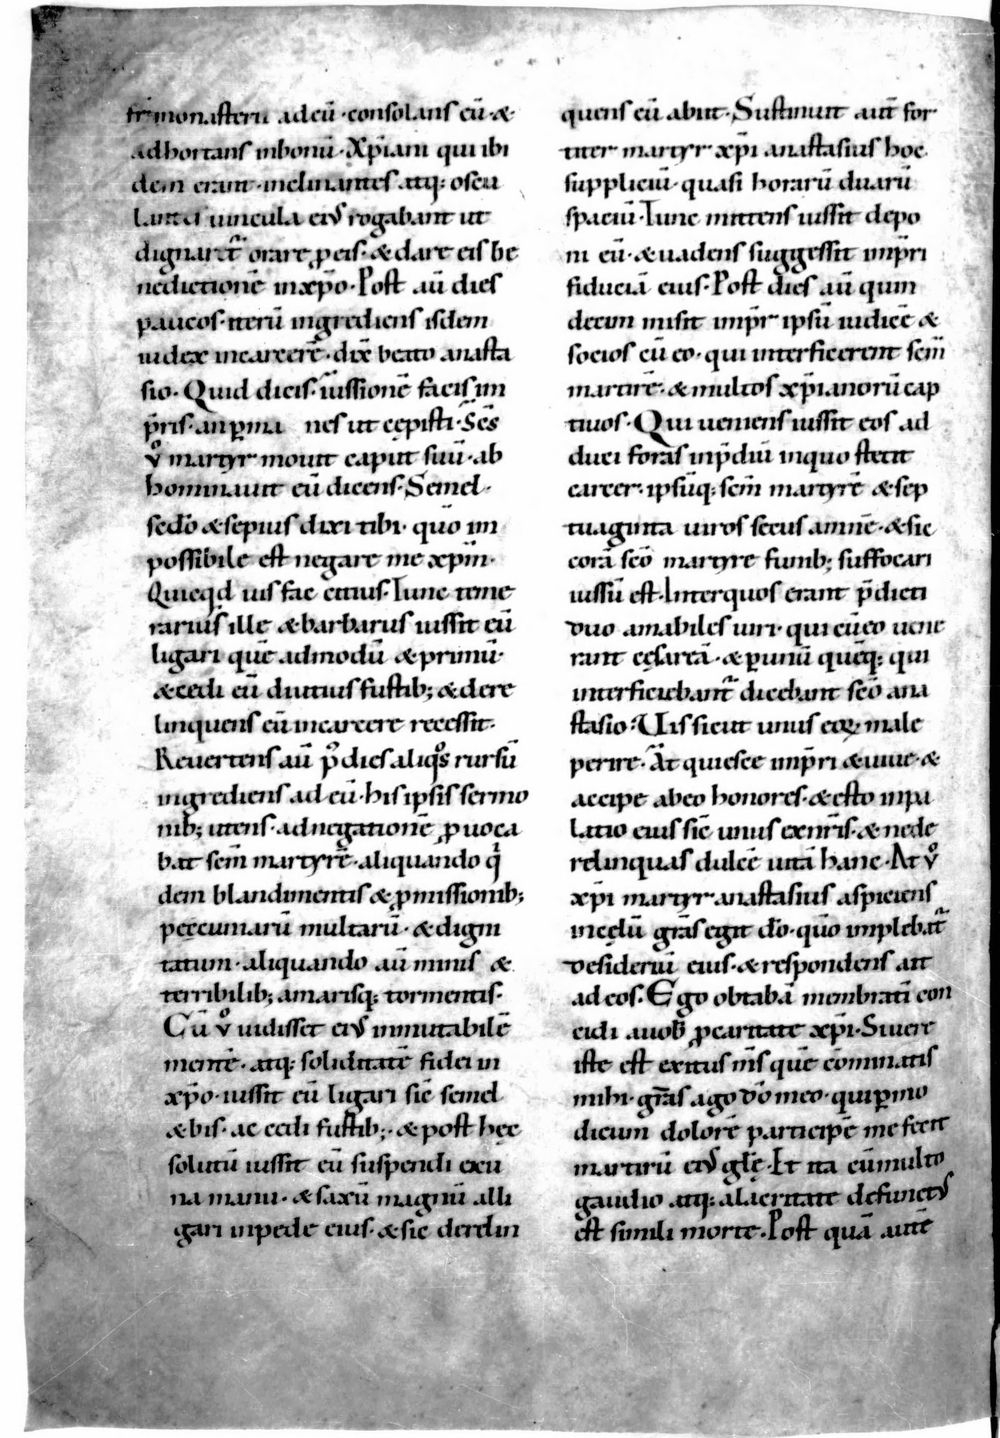 fr̄ monasterii ad eū · consolans eū · &
adhortans in bonū · Xp̄iani qui ibi
dem erant · inclinantes atq; oscu
lantes uincula ei᷒ rogabant ut
dignaret᷑ orare ꝓ eis · & dare eis be
nedictionē in xp̄o · Post aū dies
paucos · iterū ingrediens isdem
iudex in carcerē · dix̄ beato anasta
sio · Quid dicis · iussionē facis im
p̄ris · an ꝑma nes ut cępisti · S̄c̄s
v̊ martyr mouit caput suū · ab
hominauit eū dicens · Semel ·
sc̄do & sepius dixi tibi · quō im
possibile est negare me xp̄m ·
Quicq̇d uis fac citius · Tunc teme
rarius ille & barbarus iussit eū
ligari quē admodū & primū ·
& cedi eū diutius fustib; & dere
linquens eū in carcere recessit ·
Reuertens aū p̊ dies aliq̊s rursū
ingrediens ad eū · his ipsis sermo
nib; utens · ad negationē ꝓuoca
bat sc̄m martyrē · aliquando q̇
dem blandimentis & ꝓmissionib;
peccuniarū multarū · & digni
tatum · aliquando aū minis &
terribilib; amarisq; tormentis ·
Cū v̊ uidisset ei᷒ inmutabilē
mentē · atq; soliditatē fidei in
xp̄o · iussit eū ligari sic̄ semel
& bis · ac cedi fustib; · & post hęc
solutū iussit eū suspendi ex u
na manu · & saxū magnū alli
gari in pede eius · & sic derelin
quens eū abiit · Sustinuit aut̄ for
titer martyr xp̄i anastasius hoc
suppliciū · quasi horarū duarū
spaciū · Tunc mittens iussit depo
ni eū · & uadens suggessit imp̄ri
fiduciā eius · Post dies aū quin
decim misit imp̄r ipsū iudicē &
socios cū eo · qui interficerent sc̄m
martirē · & multos xp̄ianorū cap
tiuos · Qui ueniens iussit eos ad
duci foras in p̄diū in quo stetit
carcer · ipsūq; sc̄m martyrē & sep
tuaginta uiros secus amnē · & sic
corā sc̄o martyre funib; suffocari
iussū est · Inter quos erant p̄dicti
duo amabiles uiri · qui cū eo uene
rant cęsareā · & ꝑ unū quēq; qui
interficiebant᷑ dicebant sc̄o ana
stasio · Uis sicut unus eoꝝ male
perire · At quiesce imp̄ri & uiue · &
accipe ab eo honores · & esto in pa
latio eius sic̄ unus ex nr̄is · & ne de
relinquas dulcē uitā hanc · At v̊
xp̄i martyr anastasius aspiciens
in cęlū gr̄as egit dō · quō implebat᷑
desideriū eius · & respondens ait
ad eos · Ego obtabā membratī con
cidi a uob̄ ꝓ caritate xp̄i · Si uere
iste est exitus m̄s quē cōminatis
mihi · gr̄as ago dō meo · qui ꝑ mo
dicum dolorē participē me fecit
martirū ei᷒ gl̄ę · Et ita cū multo
gaudio atq; alacritate defunct᷒
est simili morte · Post quā autē